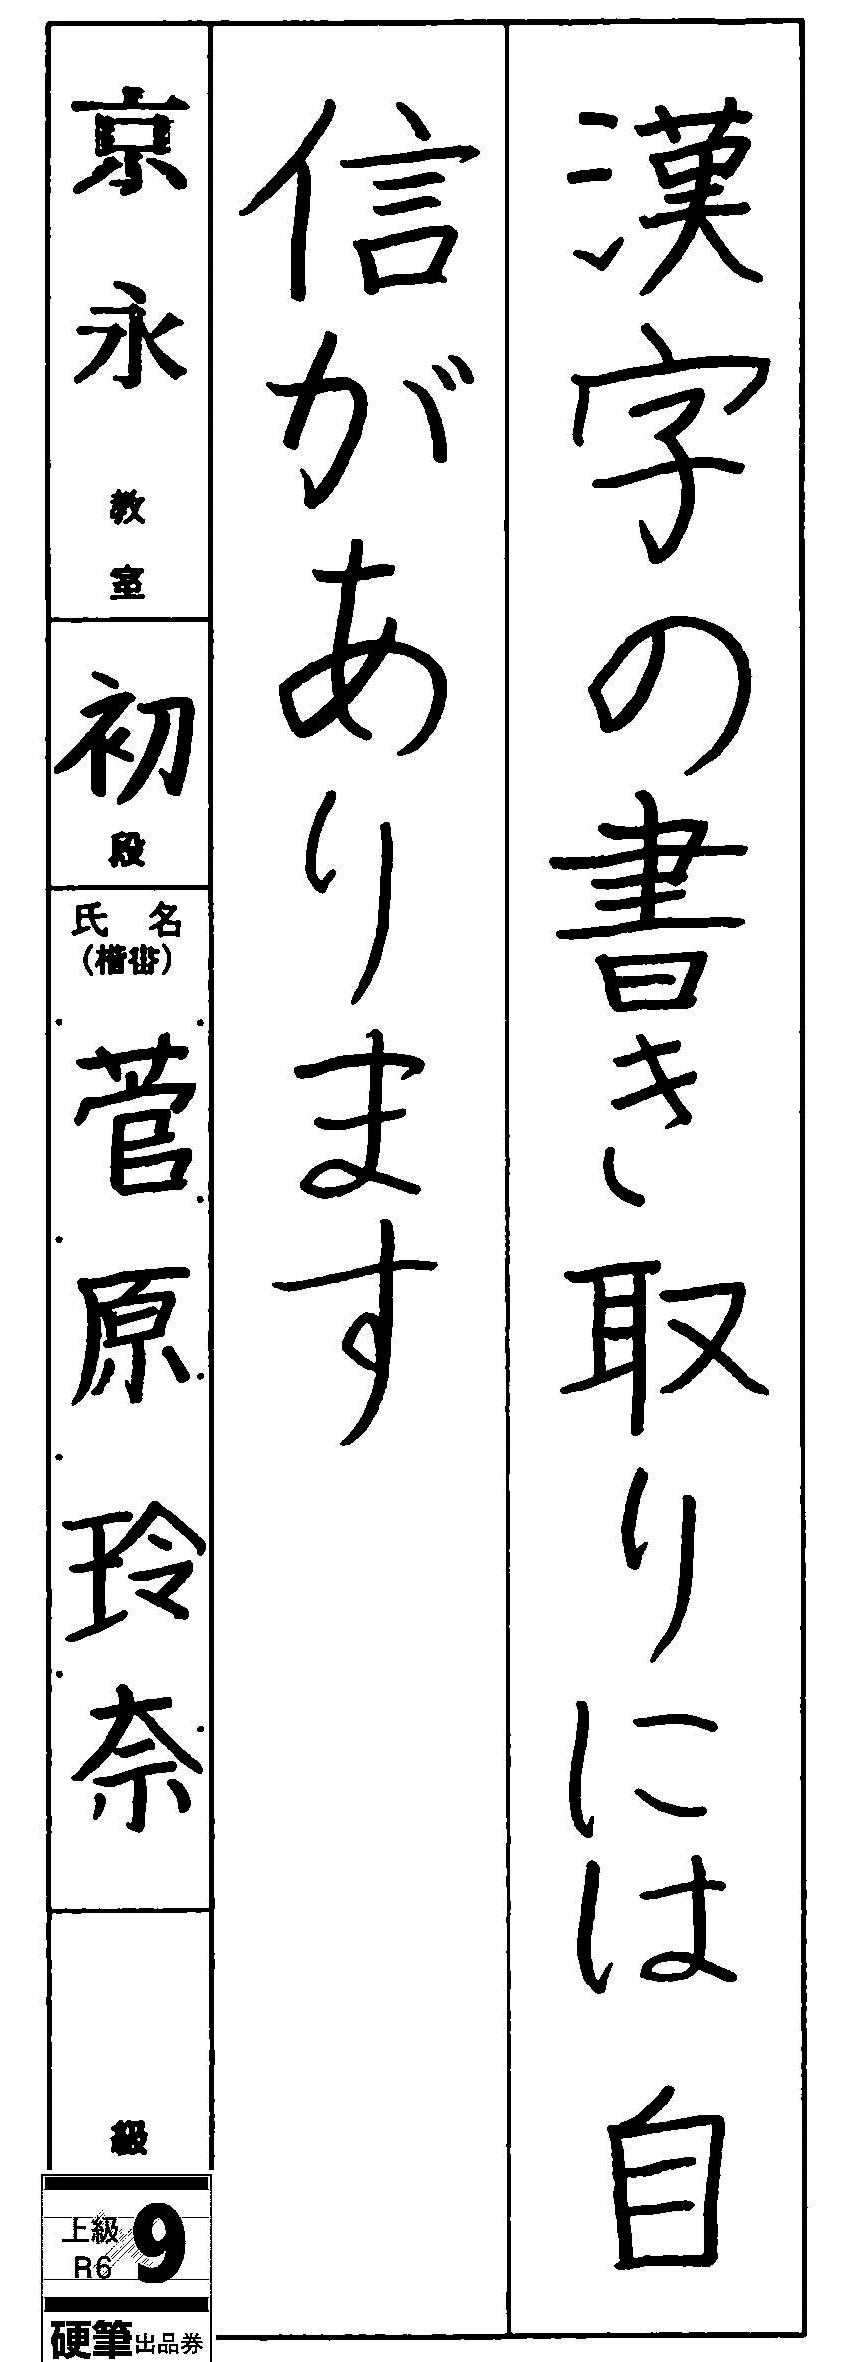 漢字の書き取りには自
信があります
京永教室
初段
氏名
(楷書)
菅原玲奈
級
上級
R6
9
硬筆出品券